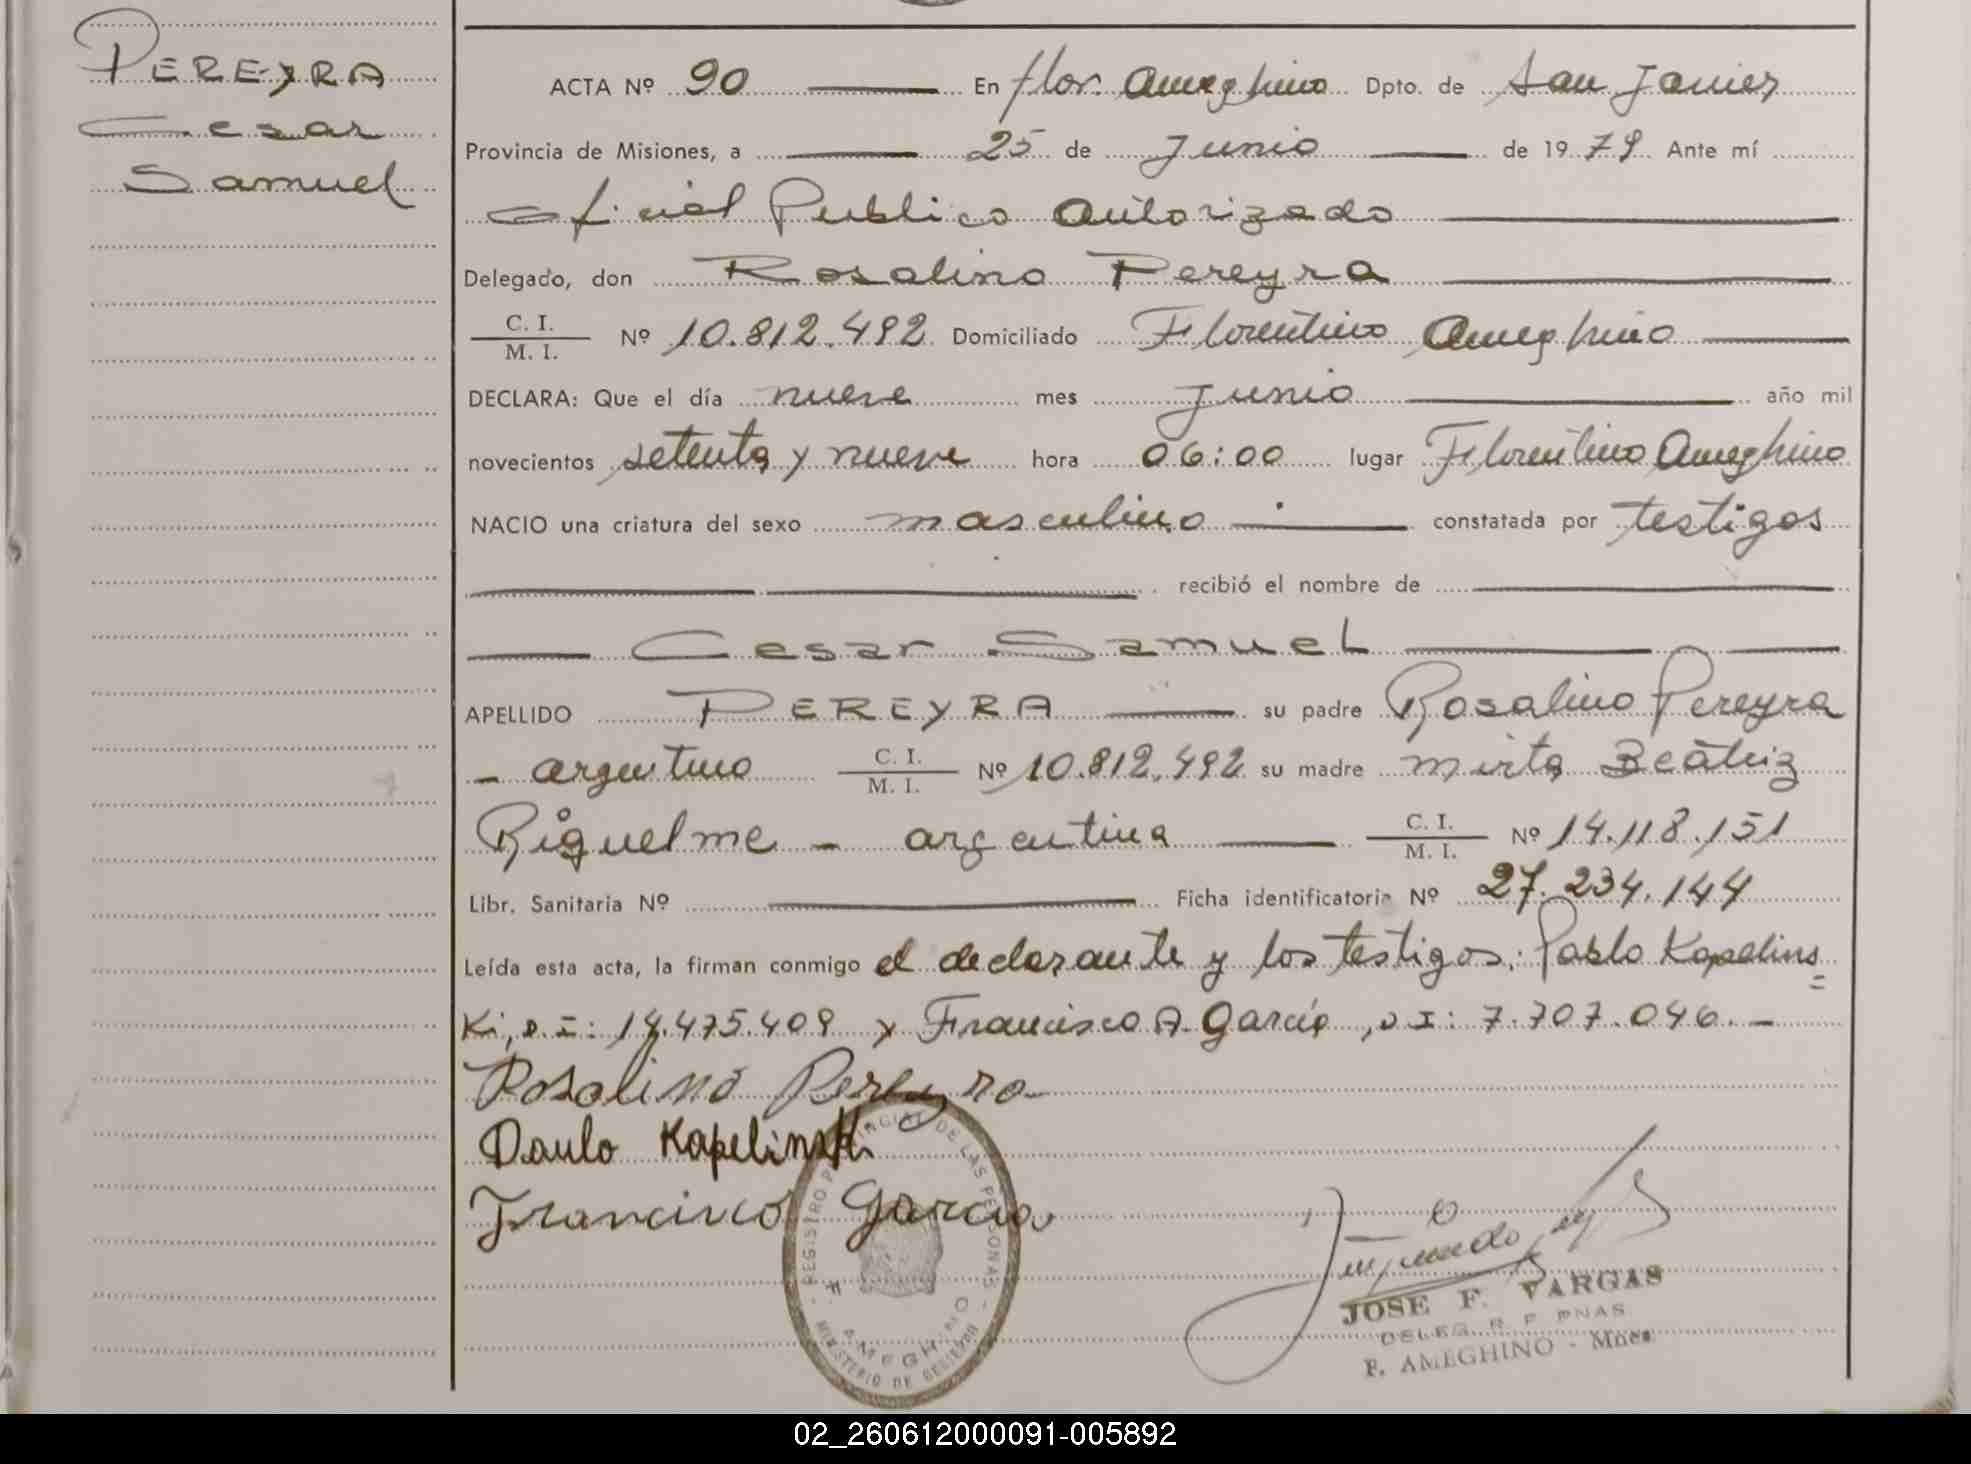 PEREYRA
Cesar
Samuel
ACTA Nº 90 En flor. Ameghino Dpto. de San Javier
Provincia de Misiones, a 25 de Junio de 1979 Ante mí
oficial Publico Autorizado
Delegado, don Rosalino Pereyra
C. I. / M. I. Nº 10.812.492 Domiciliado Florentino Ameghino
DECLARA: Que el día nueve mes Junio año mil
novecientos setenta y nueve hora 06:00 lugar Florentino Ameghino
NACIO una criatura del sexo masculino constatada por testigos
recibió el nombre de
Cesar Samuel
APELLIDO PEREYRA su padre Rosalino Pereyra
- argentino C. I. / M. I. Nº 10.812.492 su madre mirta Beatriz
Riquelme - argentina C. I. / M. I. Nº 14.118.151
Libr. Sanitaria Nº Ficha identificatoria Nº 27.234.144
Leída esta acta, la firman conmigo el declarante y los testigos: Pablo Kapelins=
Ki, D.I: 14.475.409 y Francisco A. García, D I: 7.707.046.-
Rosalino Pereyra
Paulo Kapelinski
Francisco Garcia
REGISTRO PROVINCIAL DE LAS PERSONAS
F. AMEGHINO
MINISTERIO DE GOBIERNO
JOSE F. VARGAS
DELEG. R. P. PNAS
F. AMEGHINO - Mnes
02_260612000091-005892